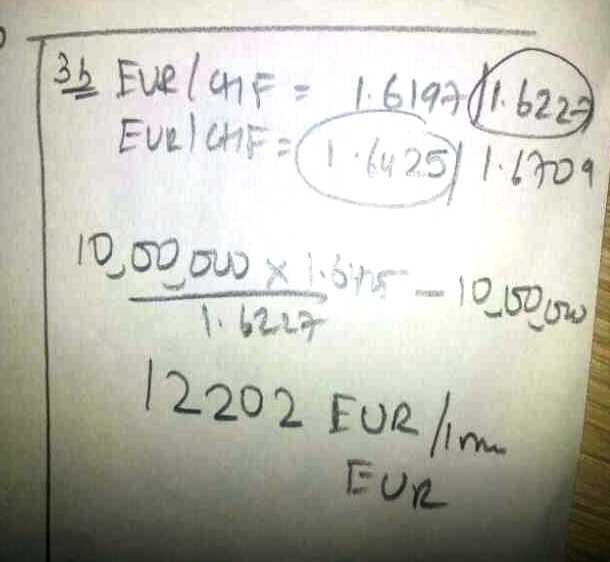 3b EUR/CHF = 1.6197/1.6227
EUR/CHF = 1.6425/1.6709
10,00,000 × 1.6425 − 10,00,000
1.6227
12202 EUR/1m
EUR